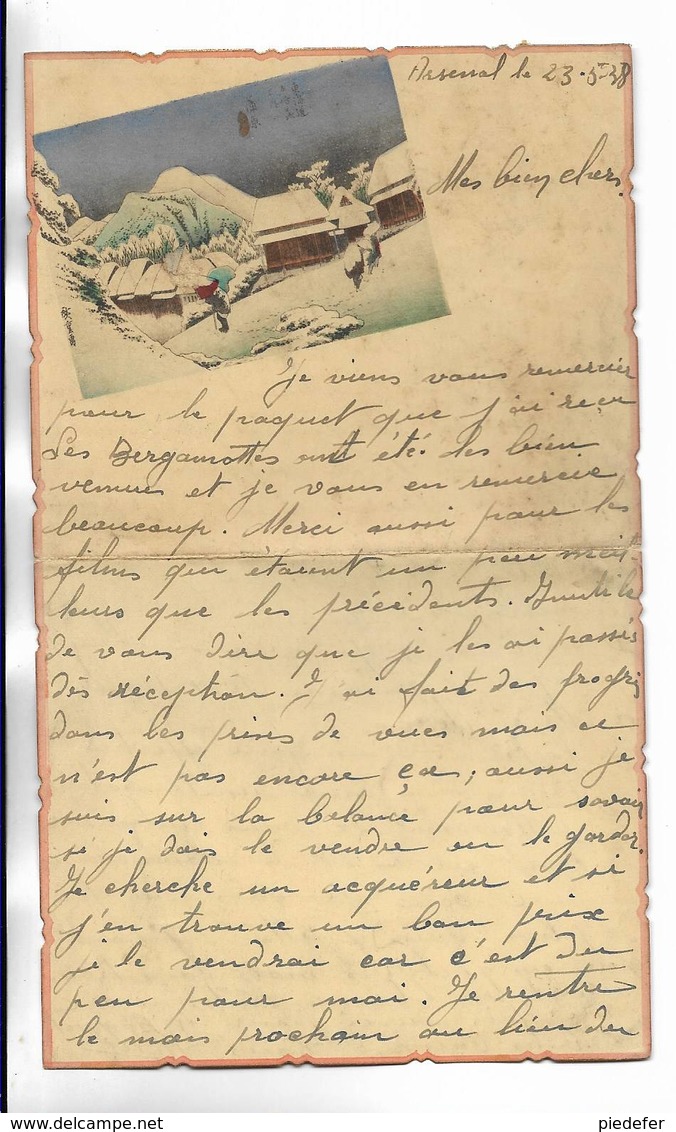 Arsenal le 23-5-38
Mes bien chers.
Je viens vous remercier
pour le paquet que j'ai reçu
Les Bergamottes ont été des bien
venues et je vous en remercie
beaucoup. Merci aussi pour les
films qui étaient un peu meil-
leurs que les précédents. Inutile
de vous dire que je les ai passés
dès réception. J'ai fait des progrès
dans les prises de vues mais ce
n'est pas encore ça; aussi je
suis sur la balance pour savoir
si je dois le vendre ou le garder.
Je cherche un acquéreur et si
j'en trouve un bon prix
je le vendrai car c'est du
peu pour moi. Je rentre
le mois prochain au lieu du
www.delcampe.net
piedefer